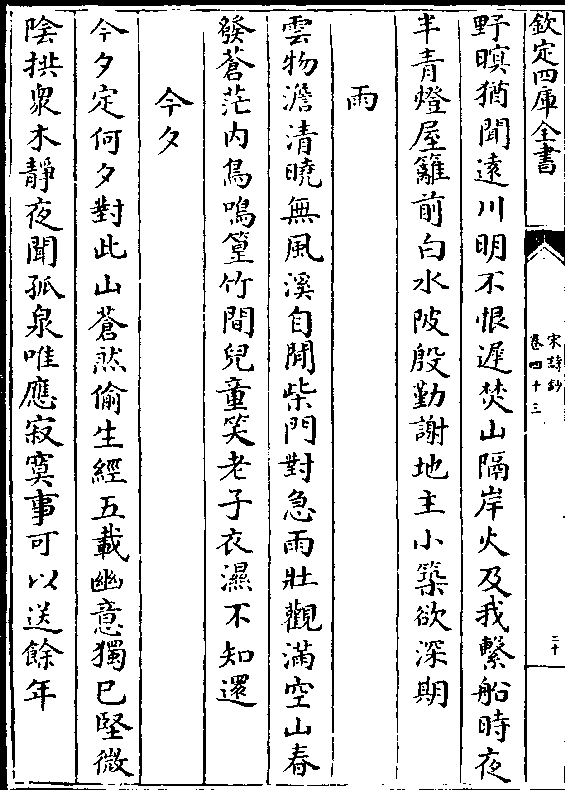 欽定四庫全書
宋詩鈔
卷四十三
二十
野暝猶聞遠川明不恨遲焚山隔岸火及我繫船時夜
半青燈屋籬前白水陂殷勤謝地主小築欲深期
雨
雲物澹清曉無風溪自閒柴門對急雨壯觀滿空山春
發蒼茫內鳥鳴篁竹間兒童笑老子衣濕不知還
今夕
今夕定何夕對此山蒼然偷生經五載幽意獨已堅微
陰拱衆木靜夜聞孤泉唯應寂寞事可以送餘年